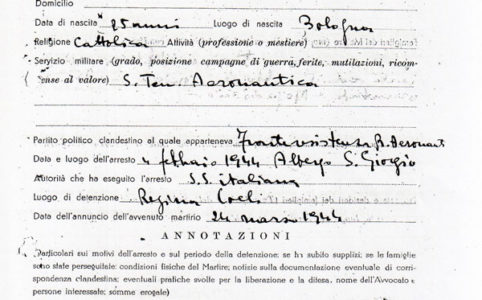 Domicilio
Data di nascita 25 anni Luogo di nascita Bologna
Religione Cattolica Attività (professione o mestiere)
Servizio militare (grado, posizione campagne di guerra, ferite, mutilazioni, ricom-
pense al valore) S. Ten. Aeronautica
Partito politico clandestino al quale apparteneva Fronte resistenza R. Aeronaut
Data e luogo dell'arresto 4 febbraio 1944 Albergo S. Giorgio
Autorità che ha eseguito l'arresto S.S. italiana
Luogo di detenzione Regina Coeli
Data dell'annuncio dell'avvenuto martirio 24 marzo 1944
ANNOTAZIONI
(Particolari sui motivi dell'arresto e sul periodo della detenzione: se ha subito supplizi; se le famiglie
sono state perseguitate; condizioni fisiche del Martire; notizie sulla documentazione eventuale di corri-
spondenza clandestina; eventuali pratiche svolte per la liberazione e la difesa, nome dell'Avvocato e
persone interessate; somme erogate)